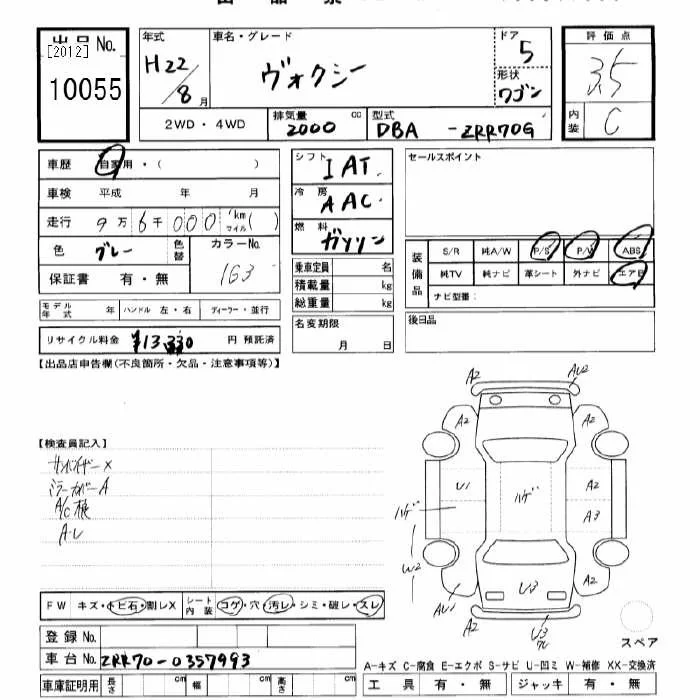 出品No.
[2012]
10055
年式
H22/8月
車名・グレード
ヴォクシー
ドア
5
形状
ワゴン
評価点
3.5
内装
C
2WD・4WD
排気量
2000 cc
型式
DBA -ZRR70G
車歴 自家用・( )
車検 平成 年 月
走行 9万6千000 km マイル( )
色 グレー 色替
カラーNo.
1G3
保証書 有・無
モデル年式 年 ハンドル 左・右 ディーラー・並行
リサイクル料金 ¥13,330 円 預託済
シフト IAT.
冷房 AAC.
燃料 ガソリン
乗車定員 名
積載量 kg
総重量 kg
名変期限
月 日
セールスポイント
装備品
S/R 純A/W P/S P/W ABS
純TV 純ナビ 革シート 外ナビ エアB
ナビ型番:
後日品
【出品店申告欄(不良箇所・欠品・注意事項等)】
【検査員記入】
サンバイザー×
ミラーカバーA
A/C
A・レ
A2
AU2
A2
A2
U1
ハゲ
ハゲ
A2
A3
W2
AU1
U3
A2
A2
U3
FW キズ・トビ石・割レX
シート内装 コゲ・穴・汚レ・シミ・破レ・スレ
登録No.
車台No. ZRR70-0357993
車庫証明用 長さ cm 幅 cm 高さ cm
スペア
A-キズ C-腐食 E-エクボ S-サビ U-凹ミ W-補修 XX-交換済
工具 有・無 ジャッキ 有・無